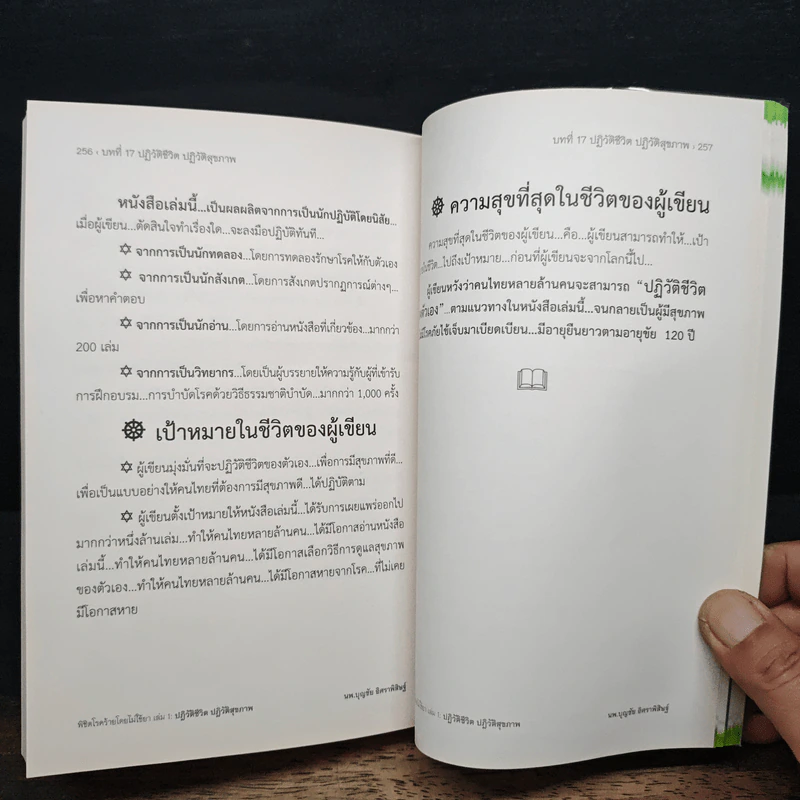 256 • บทที่ 17 ปฏิวัติชีวิต ปฏิวัติสุขภาพ
หนังสือเล่มนี้...เป็นผลผลิตจากการเป็นนักปฏิบัติโดยนิสัย...
เมื่อผู้เขียน...ตัดสินใจทำเรื่องใด...จะลงมือปฏิบัติทันที...
✡ จากการเป็นนักทดลอง...โดยการทดลองรักษาโรคให้กับตัวเอง
✡ จากการเป็นนักสังเกต...โดยการสังเกตปรากฏการณ์ต่างๆ...
เพื่อหาคำตอบ
✡ จากการเป็นนักอ่าน...โดยการอ่านหนังสือที่เกี่ยวข้อง...มากกว่า
200 เล่ม
✡ จากการเป็นวิทยากร...โดยเป็นผู้บรรยายให้ความรู้กับผู้ที่เข้ารับ
การฝึกอบรม...การบำบัดโรคด้วยวิธีธรรมชาติบำบัด...มากกว่า 1,000 ครั้ง
☸ เป้าหมายในชีวิตของผู้เขียน
✡ ผู้เขียนมุ่งมั่นที่จะปฏิวัติชีวิตของตัวเอง...เพื่อการมีสุขภาพที่ดี...
เพื่อเป็นแบบอย่างให้คนไทยที่ต้องการมีสุขภาพดี...ได้ปฏิบัติตาม
✡ ผู้เขียนตั้งเป้าหมายให้หนังสือเล่มนี้...ได้รับการเผยแพร่ออกไป
มากกว่าหนึ่งล้านเล่ม...ทำให้คนไทยหลายล้านคน...ได้มีโอกาสอ่านหนังสือ
เล่มนี้...ทำให้คนไทยหลายล้านคน...ได้มีโอกาสเลือกวิธีการดูแลสุขภาพ
ของตัวเอง...ทำให้คนไทยหลายล้านคน...ได้มีโอกาสหายจากโรค...ที่ไม่เคย
มีโอกาสหาย
นพ.บุญชัย อิศราพิสิษฐ์
พิชิตโรคร้ายโดยไม่ใช้ยา เล่ม 1: ปฏิวัติชีวิต ปฏิวัติสุขภาพ
บทที่ 17 ปฏิวัติชีวิต ปฏิวัติสุขภาพ • 257
☸ ความสุขที่สุดในชีวิตของผู้เขียน
ความสุขที่สุดในชีวิตของผู้เขียน...คือ...ผู้เขียนสามารถทำให้...เป้า
ในชีวิต...ไปถึงเป้าหมาย...ก่อนที่ผู้เขียนจะจากโลกนี้ไป...
ผู้เขียนหวังว่าคนไทยหลายล้านคนจะสามารถ “ปฏิวัติชีวิต
ตัวเอง”...ตามแนวทางในหนังสือเล่มนี้...จนกลายเป็นผู้มีสุขภาพ
มีโรคภัยไข้เจ็บมาเบียดเบียน...มีอายุยืนยาวตามอายุขัย 120 ปี
เล่ม 1: ปฏิวัติชีวิต ปฏิวัติสุขภาพ
นพ.บุญชัย อิศราพิสิษฐ์